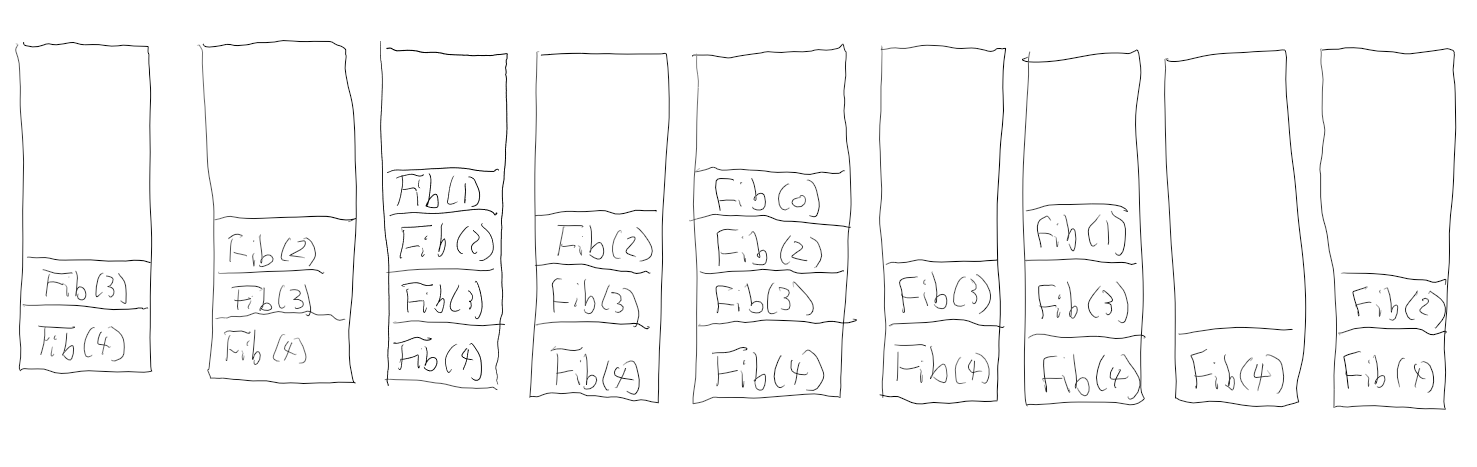 Fib(3)
Fib(4)
Fib(2)
Fib(3)
Fib(4)
Fib(1)
Fib(2)
Fib(3)
Fib(4)
Fib(2)
Fib(3)
Fib(4)
Fib(0)
Fib(2)
Fib(3)
Fib(4)
Fib(3)
Fib(4)
Fib(1)
Fib(3)
Fib(4)
Fib(4)
Fib(2)
Fib(4)